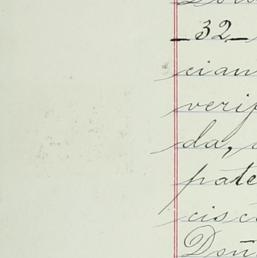 32
cian
verif
da,
pate
cisco
Doñ